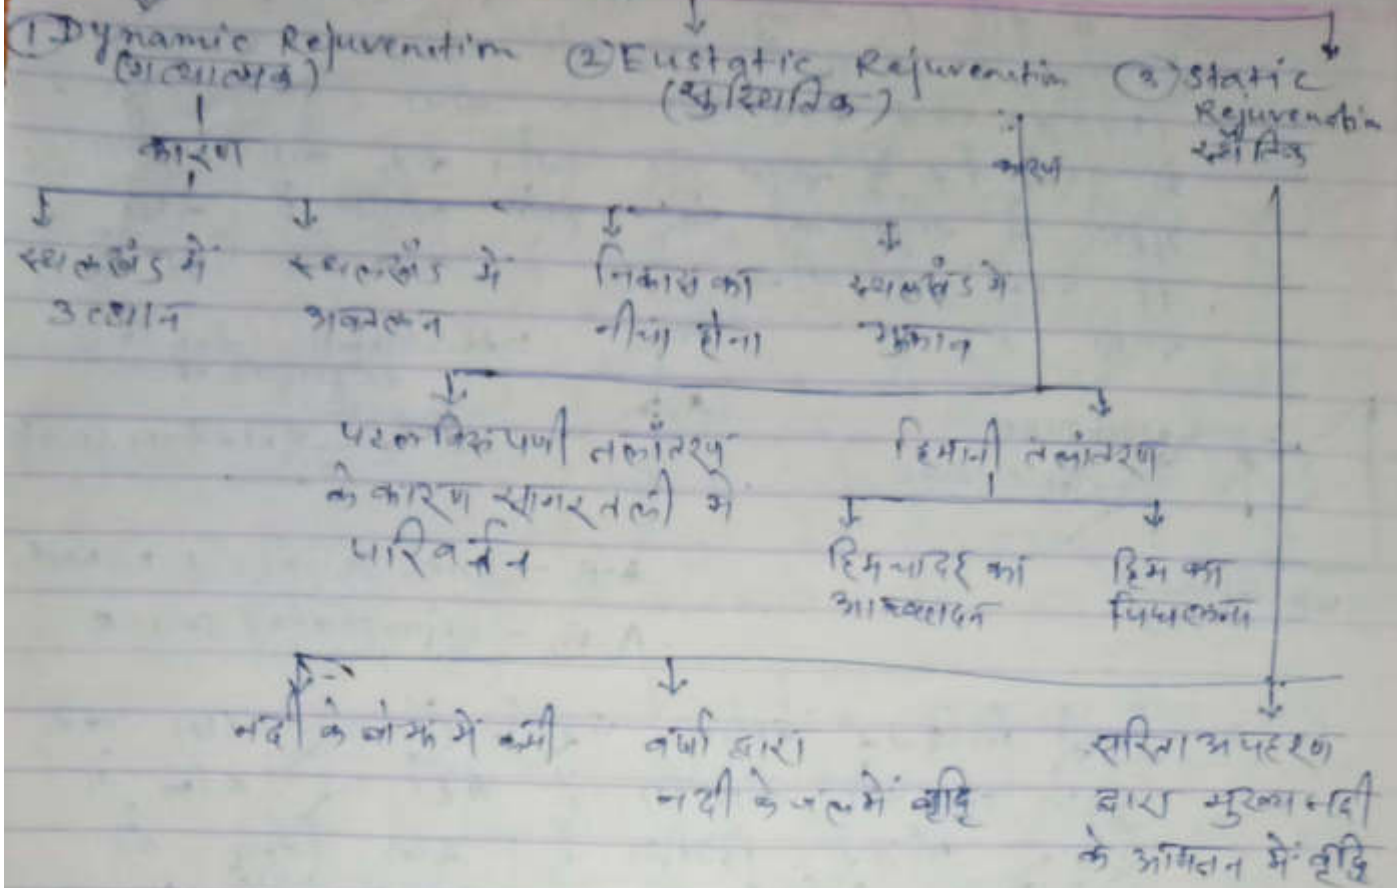 ① Dynamic Rejuvenation
(गत्यात्मक)
② Eustatic Rejuvenation
(सुस्थितिक)
③ Static
Rejuvenation
स्थैतिक
कारण
कारण
स्थलखंड में
उत्थान
स्थलखंड में
अवतलन
निकास का
नीचा होना
स्थलखंड में
झुकाव
पटलविरूपणी तलांतरण
के कारण सागर तली में
परिवर्तन
हिमानी तलांतरण
हिमचादर का
आच्छादन
हिम का
पिघलना
नदी के बोझ में कमी
वर्षा द्वारा
नदी के जल में वृद्धि
सरिता अपहरण
द्वारा मुख्य नदी
के आयतन में वृद्धि